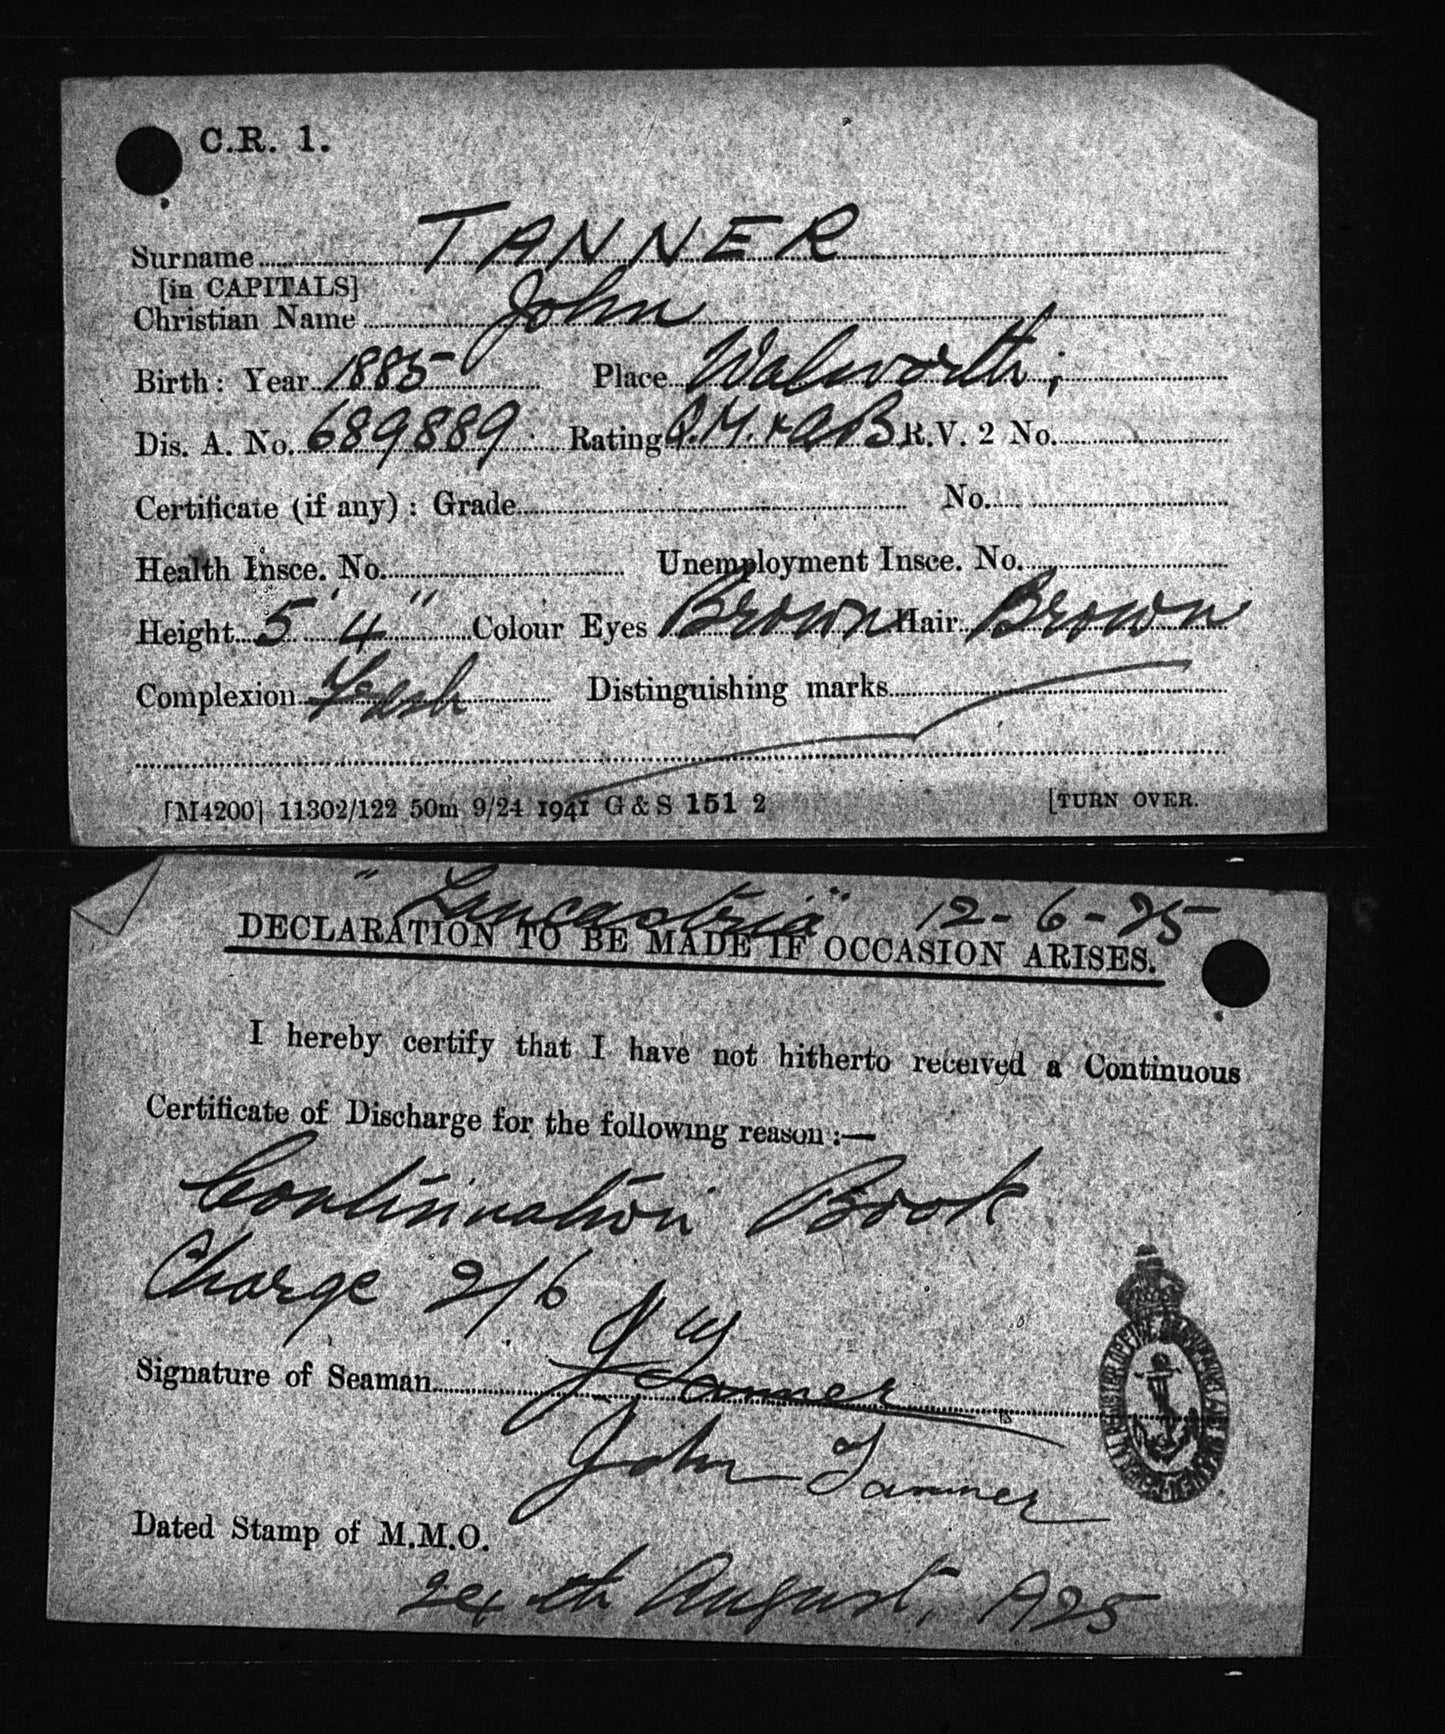 C.R. 1.
Surname TANNER
[in CAPITALS]
Christian Name John
Birth: Year 1885 Place Walworth;
Dis. A. No. 689889 Rating Q.M. + AB R.V. 2 No.
Certificate (if any): Grade No.
Health Insce. No. Unemployment Insce. No.
Height 5' 4" Colour Eyes Brown Hair Brown
Complexion Fresh Distinguishing marks
[M4200] 11302/122 50m 9/24 1941 G & S 151 2 [TURN OVER.
"Lancastria" 12-6-25
DECLARATION TO BE MADE IF OCCASION ARISES.
I hereby certify that I have not hitherto received a Continuous
Certificate of Discharge for the following reason:—
Continuation Book
Charge 2/6
Signature of Seaman Tanner
John Tanner
Dated Stamp of M.M.O.
24th August, 1925